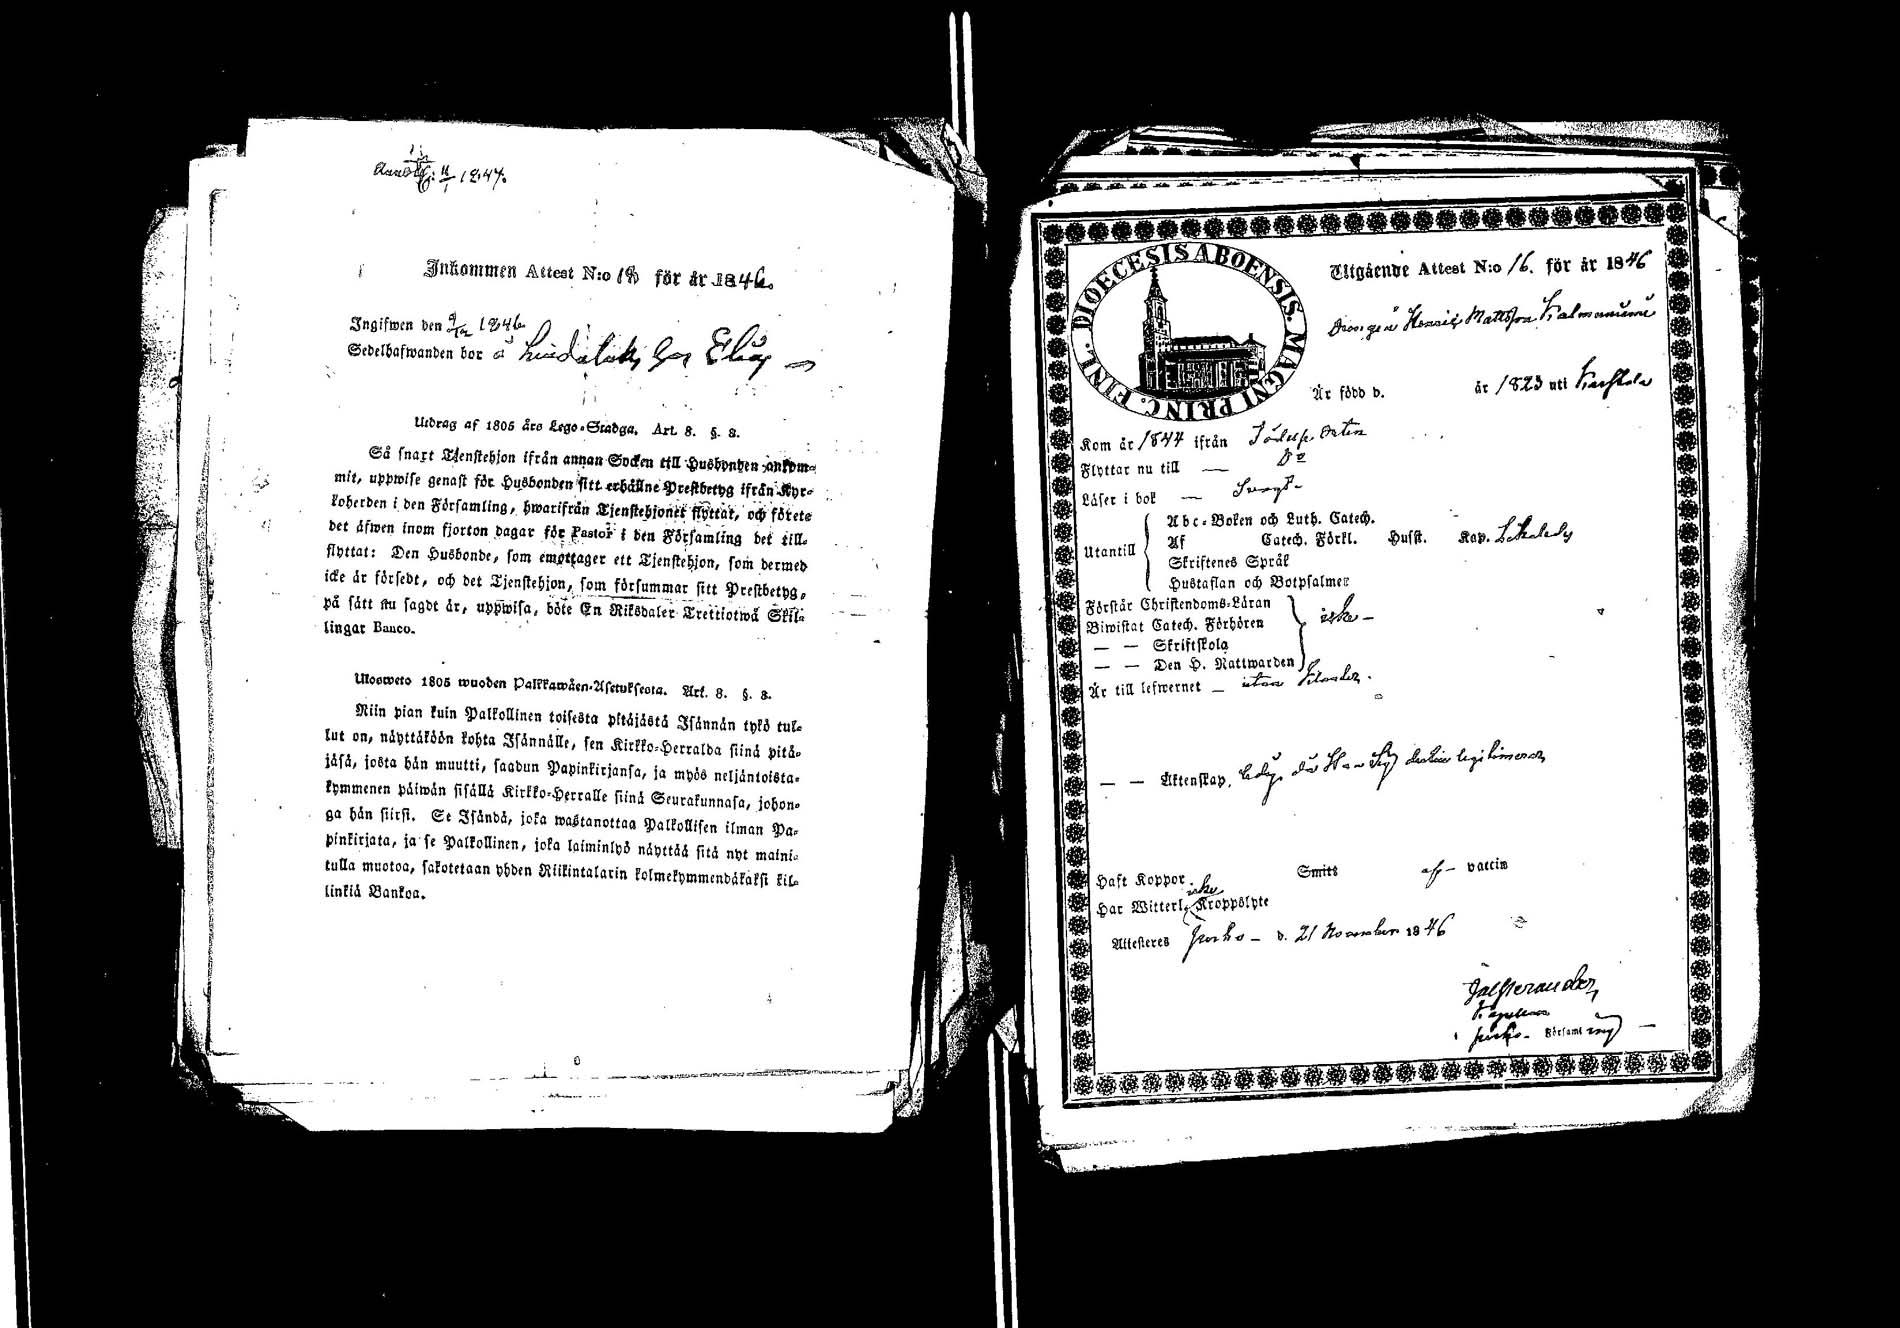 11/1 1847.
Inkommen Attest N:o 18 för år 1846.
Ingifwen den 9/12 1846
Sedelhafwanden bor
Utdrag af 1805 års Lego-Stadga. Art. 8. §. 8.
Så snart Tjenstehjon ifrån annan Socken till Husbonden ankom-
mit, uppwise genast för Husbonden sitt erhållne Prestbetyg ifrån Kyr-
koherden i den Församling, hwarifrån Tjenstehjonet flyttat, och förete
det äfwen inom fjorton dagar för Pastor i den Församling det till-
flyttat: Den Husbonde, som emottager ett Tjenstehjon, som dermed
icke är försedt, och det Tjenstehjon, som försummar sitt Prestbetyg,
på sätt nu sagdt är, uppwisa, böte En Riksdaler Trettiotwå Skil-
lingar Banco.
Ulosweto 1805 wuoden Palkkawäen-Asetuksesta. Art. 8. §. 8.
Niin pian kuin Palkollinen toisesta pitäjästä Isännän tykö tul-
lut on, näyttäköön kohta Isännälle, sen Kirkko-Herralda siinä pitä-
jäsä, josta hän muutti, saadun Papinkirjansa, ja myös neljäntoista-
kymmenen päiwän sisällä Kirkko-Herralle siinä Seurakunnasa, johon-
ga hän siirsi. Se Isändä, joka wastanottaa Palkollisen ilman Pa-
pinkirjata, ja se Palkollinen, joka laiminlyö näyttää sitä nyt maini-
tulla muotoa, sakotetaan yhden Riikintalarin kolmekymmendäkaksi kil-
linkiä Bankoa.
DIOECESIS ABOENSIS. MAGNI PRINC. FINL.
Utgående Attest N:o 16. för år 1846
Drängen Henric Mattsson
Är född d. år 1823 uti
Kom år 1844 ifrån
Flyttar nu till — Do
Läser i bok — Svagt
Utantill
Abc-Boken och Luth. Catech.
Af Catech. Förkl. Husst. Kap.
Skriftenes Språk
Hustaflan och Botpsalmer
Förstår Christendoms-Läran
Biwistat Catech. Förhören icke —
— — Skriftskola
— — Den H. Nattwarden
Är till lefwernet — utan klander.
— — Äktenskap, ledig,
Haft Koppor Smitt af — vaccin
Har Witterl. icke Kroppslyte
Attesteres — d. 21 November 1846
Församling —